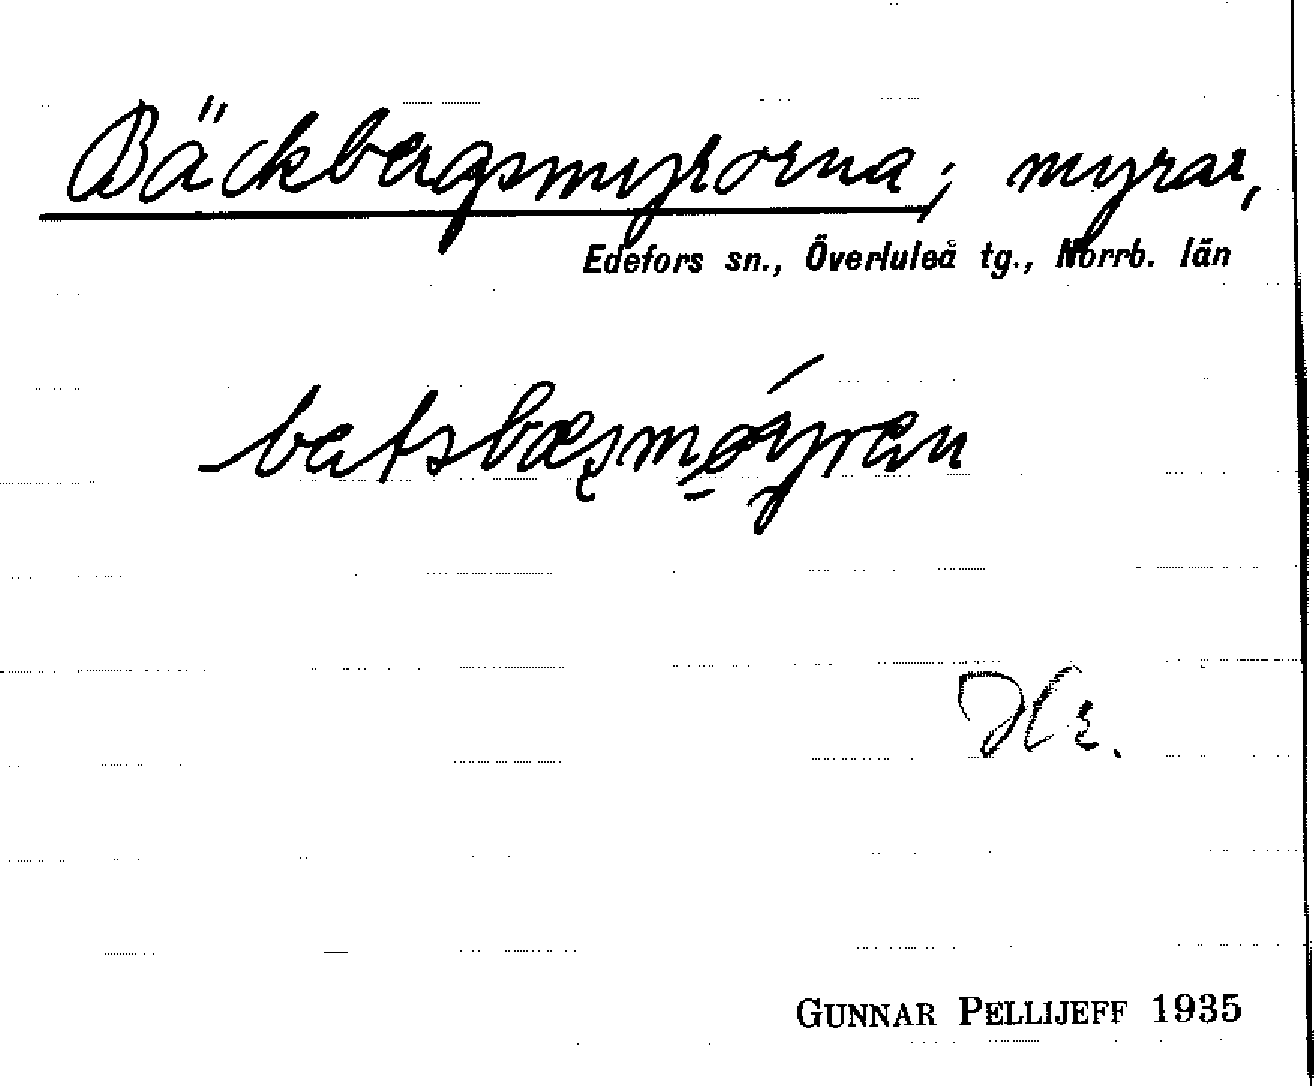 Bäckbergsmyrorna; myrar,
Edefors sn., Överluleå tg., Norrb. län
Hr.
GUNNAR PELLIJEFF 1935